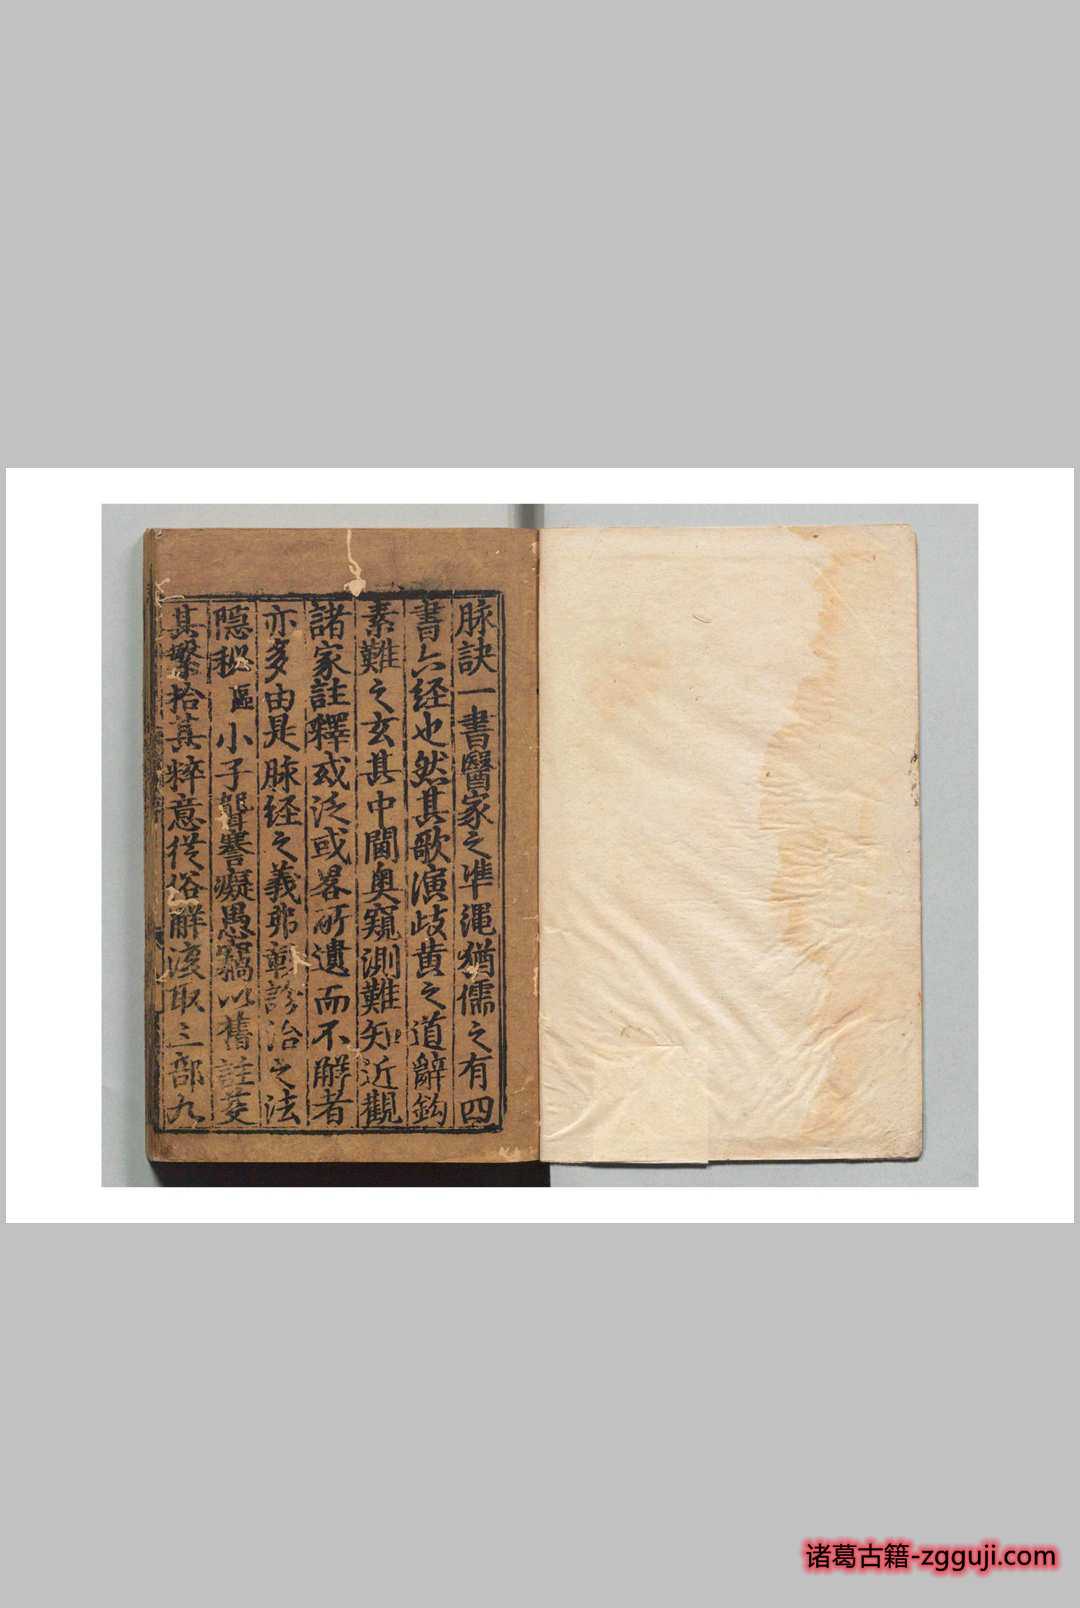 脉訣一書醫家之準繩猶儒之有四
書六経也然其歌演歧黄之道辭鈎
素難之玄其中閫奥窺測難知近觀
諸家註釋或泛或畧所遺而不觧者
亦多由是脉経之義弗彰診治之法
隠秘區小子瞽謇癡愚竊以舊註芟
其繁拾其粹意従俗觧浚取三部九
诸葛古籍-zgguji.com